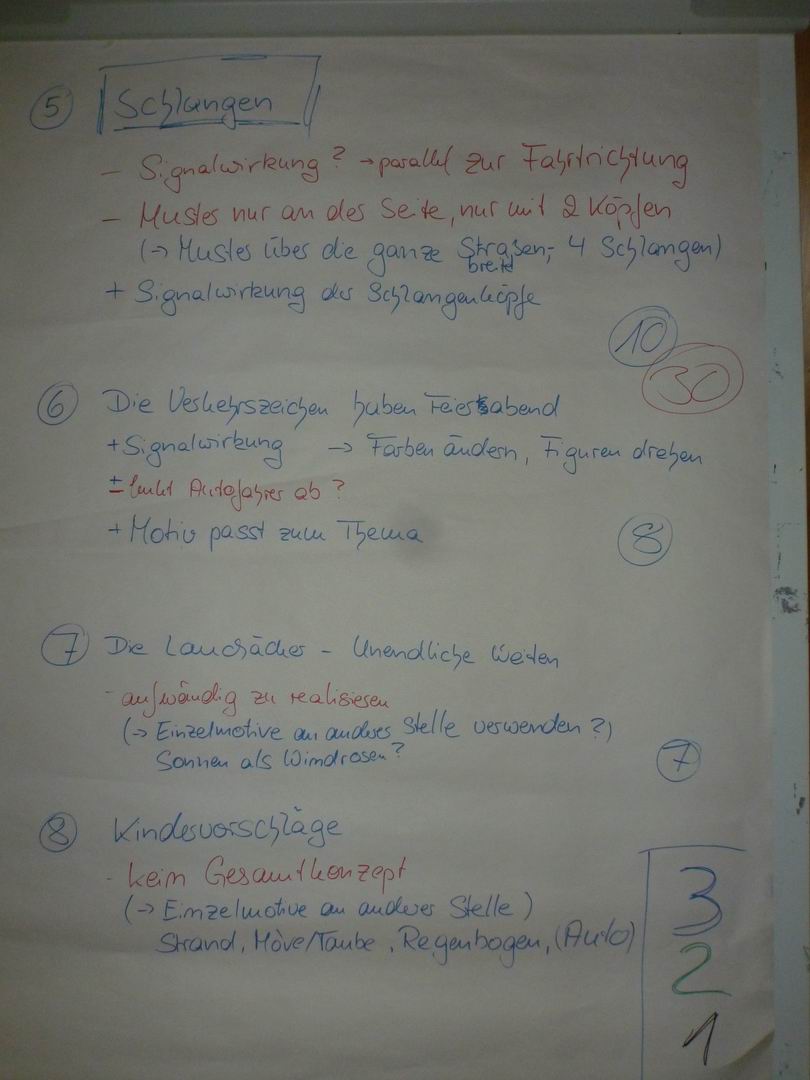 5 Schlangen
– Signalwirkung? → parallel zur Fahrtrichtung
– Muster nur an der Seite, nur mit 2 Köpfen
(→ Muster über die ganze Straßen-
breite, 4 Schlangen)
+ Signalwirkung der Schlangenköpfe
10
30
6 Die Verkehrszeichen haben Feierabend
+ Signalwirkung → Farben ändern, Figuren drehen
± lenkt Autofahrer ab?
+ Motiv passt zum Thema
8
7 Die - Unendliche Weiten
- aufwändig zu realisieren
(→ Einzelmotive an anderer Stelle verwenden?)
Sonnen als Windrosen?
7
8 Kindervorschläge
- kein Gesamtkonzept
(→ Einzelmotive an anderer Stelle)
Strand, Möve/Taube, Regenbogen, (Auto)
3
2
1